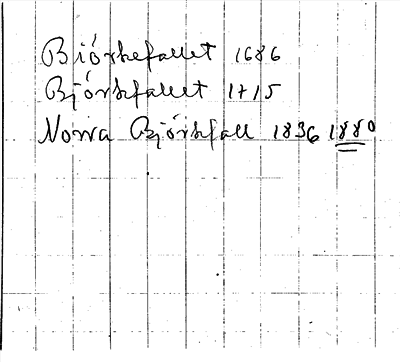 Biórkefallet 1686
Bjórkfallet 1715
Norra Bjórkfall 1836 1880